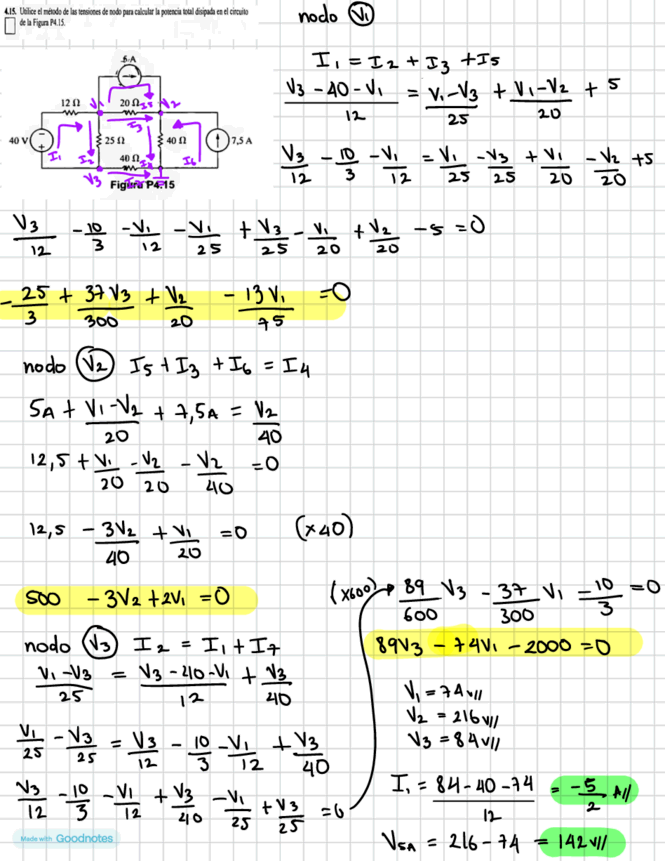 4.15. Utilice el método de las tensiones de nodo para calcular la potencia total disipada en el circuito
de la Figura P4.15.
5 A
12 Ω V1 20 Ω I5 V2
I3
40 V 25 Ω 40 Ω 7,5 A
I1 I2 40 Ω I6
V3
Figura P4.15
nodo V1
I1 = I2 + I3 + I5
V3 - 40 - V1 / 12 = V1 - V3 / 25 + V1 - V2 / 20 + 5
V3/12 - 10/3 - V1/12 = V1/25 - V3/25 + V1/20 - V2/20 + 5
V3/12 - 10/3 - V1/12 - V1/25 + V3/25 - V1/20 + V2/20 - 5 = 0
- 25/3 + 37V3/300 + V2/20 - 13V1/75 = 0
nodo V2 I5 + I3 + I6 = I4
5A + V1 - V2 / 20 + 7,5A = V2/40
12,5 + V1/20 - V2/20 - V2/40 = 0
12,5 - 3V2/40 + V1/20 = 0 (x40)
500 - 3V2 + 2V1 = 0
nodo V3 I2 = I1 + I7
V1 - V3 / 25 = V3 - 40 - V1 / 12 + V3/40
V1/25 - V3/25 = V3/12 - 10/3 - V1/12 + V3/40
V3/12 - 10/3 - V1/12 + V3/40 - V1/25 + V3/25 = 0
(x600) 89/600 V3 - 37/300 V1 - 10/3 = 0
89V3 - 74V1 - 2000 = 0
V1 = 74V//
V2 = 216V//
V3 = 84V//
I1 = 84 - 40 - 74 / 12 = -5/2 A//
V5A = 216 - 74 = 142V//
Made with Goodnotes